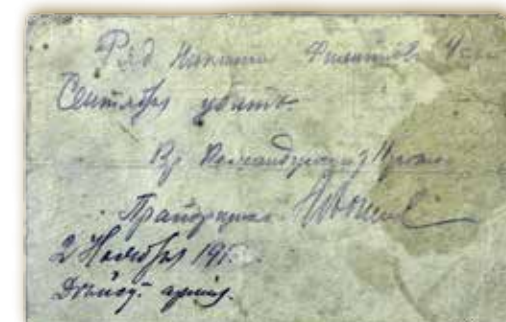 Ряд. Никита Филиппов 4го
Сентября убитъ.
Вр. Командующiй
Прапорщикъ
2 Ноября 191
Дѣйст. армiя.